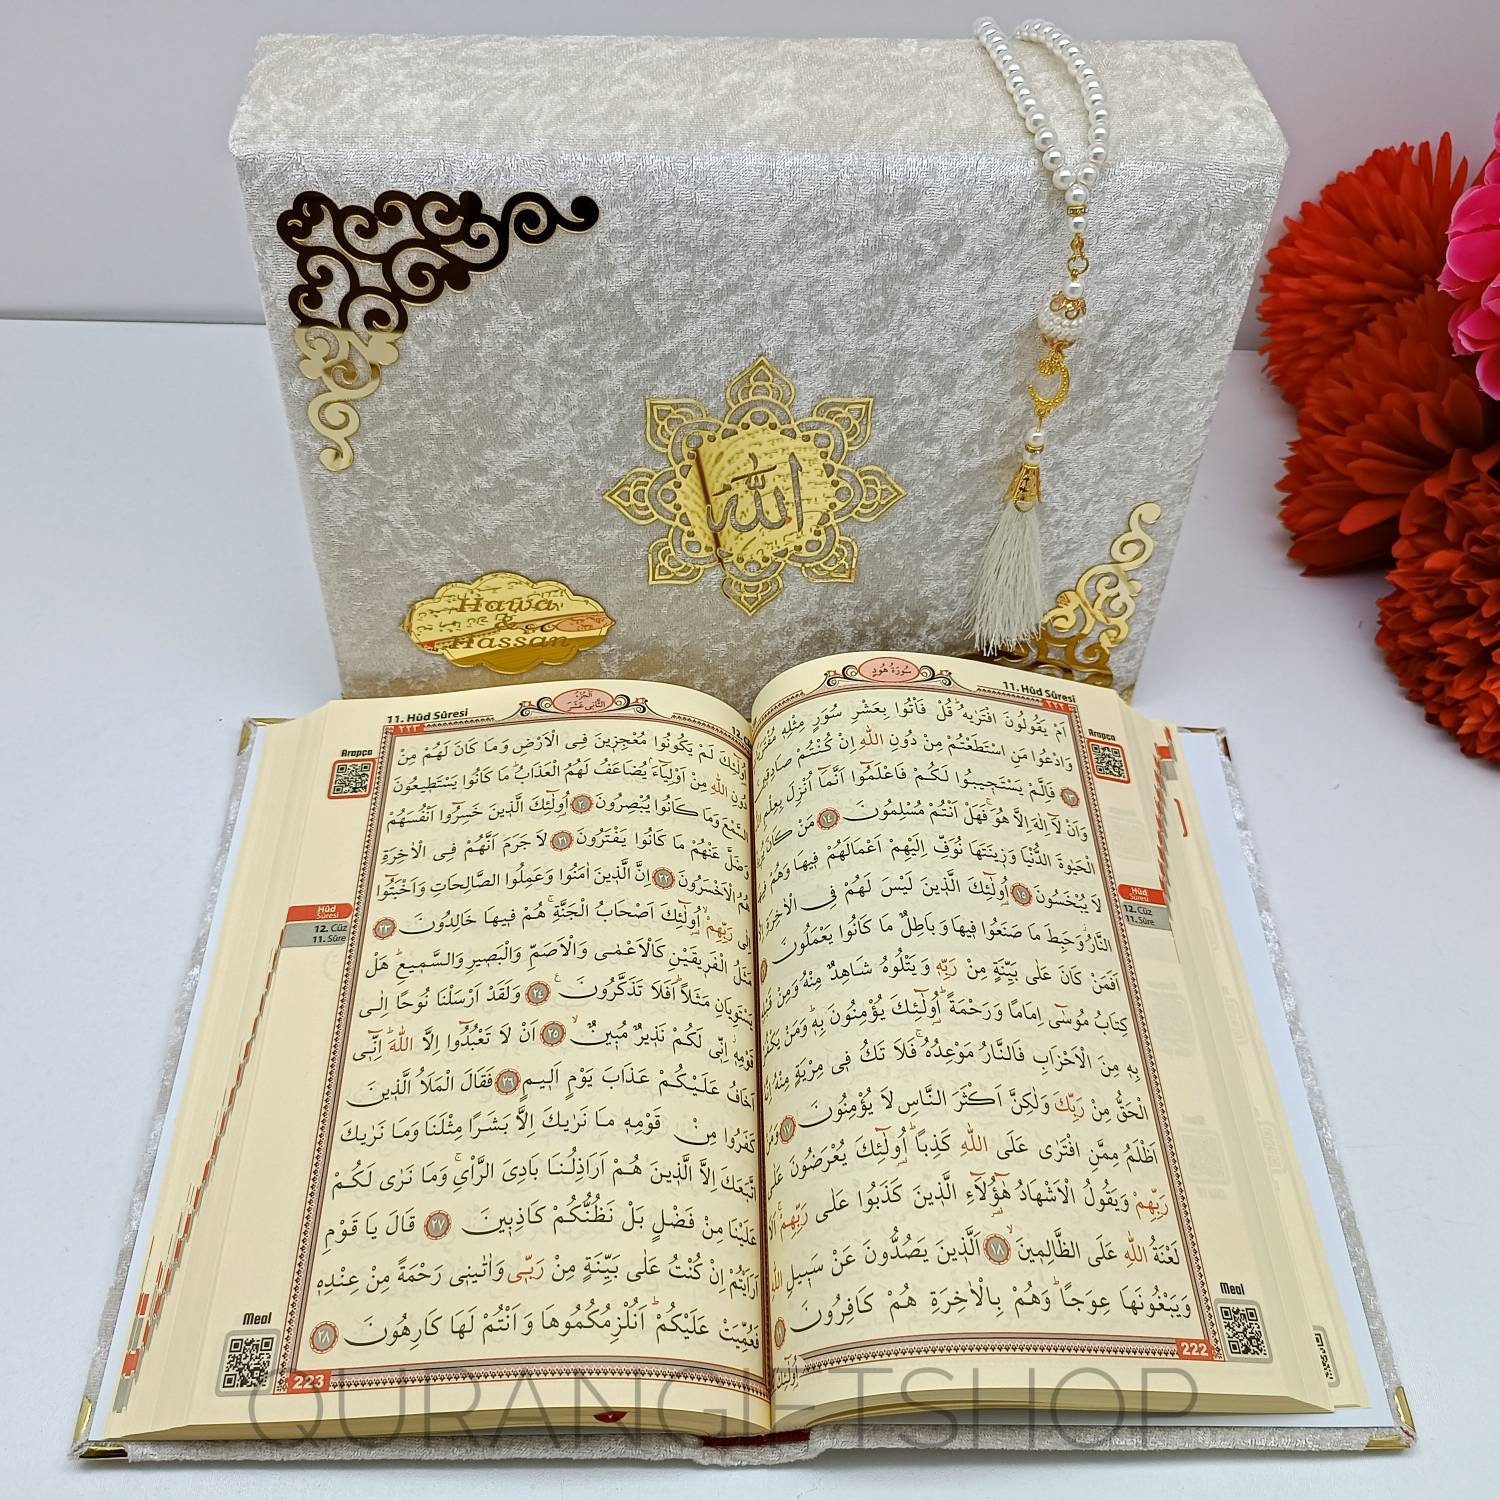 الله
Hawa
&
Hassan
11. Hûd Sûresi
٢٢٢
سُورَةُ هُودٍ
Arapça
اَمْ يَقُولُونَ افْتَرٰيهُ قُلْ فَأْتُوا بِعَشْرِ سُوَرٍ مِثْلِه۪
وَادْعُوا مَنِ اسْتَطَعْتُمْ مِنْ دُونِ اللّٰهِ اِنْ كُنْتُمْ صَادِق۪ينَ
١٣ فَاِلَّمْ يَسْتَج۪يبُوا لَكُمْ فَاعْلَمُٓوا اَنَّمَٓا اُنْزِلَ بِعِلْمِ
وَاَنْ لَٓا اِلٰهَ اِلَّا هُوَۚ فَهَلْ اَنْتُمْ مُسْلِمُونَ ١٤ مَنْ كَانَ
الْحَيٰوةَ الدُّنْيَا وَز۪ينَتَهَا نُوَفِّ اِلَيْهِمْ اَعْمَالَهُمْ ف۪يهَا وَهُمْ ف۪يهَا
لَا يُبْخَسُونَ ١٥ اُو۬لٰٓئِكَ الَّذ۪ينَ لَيْسَ لَهُمْ فِي الْاٰخِرَةِ
النَّارُۘ وَحَبِطَ مَا صَنَعُوا ف۪يهَا وَبَاطِلٌ مَا كَانُوا يَعْمَلُونَ
اَفَمَنْ كَانَ عَلٰى بَيِّنَةٍ مِنْ رَبِّه۪ وَيَتْلُوهُ شَاهِدٌ مِنْهُ وَمِنْ
كِتَابُ مُوسٰٓى اِمَامًا وَرَحْمَةًۜ اُو۬لٰٓئِكَ يُؤْمِنُونَ بِه۪ۜ وَمَنْ يَكْفُرْ
بِه۪ مِنَ الْاَحْزَابِ فَالنَّارُ مَوْعِدُهُۚ فَلَا تَكُ ف۪ي مِرْيَةٍ مِنْهُ
الْحَقُّ مِنْ رَبِّكَ وَلٰكِنَّ اَكْثَرَ النَّاسِ لَا يُؤْمِنُونَ ١٧ وَمَنْ
اَظْلَمُ مِمَّنِ افْتَرٰى عَلَى اللّٰهِ كَذِبًاۜ اُو۬لٰٓئِكَ يُعْرَضُونَ عَلٰى
رَبِّهِمْ وَيَقُولُ الْاَشْهَادُ هٰٓؤُ۬لَٓاءِ الَّذ۪ينَ كَذَبُوا عَلٰى رَبِّهِمْۚ
لَعْنَةُ اللّٰهِ عَلَى الظَّالِم۪ينَۙ ١٨ اَلَّذ۪ينَ يَصُدُّونَ عَنْ سَب۪يلِ اللّٰهِ
وَيَبْغُونَهَا عِوَجًاۜ وَهُمْ بِالْاٰخِرَةِ هُمْ كَافِرُونَ
اُو۬لٰٓئِكَ
Hûd
Sûresi
12. Cüz
11. Sûre
Meal
222
11. Hûd Sûresi
٢٢٣
اَلْجُزْءُ
الثَّانِي عَشَرَ
Arapça
اُو۬لٰٓئِكَ لَمْ يَكُونُوا مُعْجِز۪ينَ فِي الْاَرْضِ وَمَا كَانَ لَهُمْ مِنْ
دُونِ اللّٰهِ مِنْ اَوْلِيَٓاءَۢ يُضَاعَفُ لَهُمُ الْعَذَابُۜ مَا كَانُوا يَسْتَط۪يعُونَ
السَّمْعَ وَمَا كَانُوا يُبْصِرُونَ ٢٠ اُو۬لٰٓئِكَ الَّذ۪ينَ خَسِرُٓوا اَنْفُسَهُمْ
وَضَلَّ عَنْهُمْ مَا كَانُوا يَفْتَرُونَ ٢١ لَا جَرَمَ اَنَّهُمْ فِي الْاٰخِرَةِ
هُمُ الْاَخْسَرُونَ ٢٢ اِنَّ الَّذ۪ينَ اٰمَنُوا وَعَمِلُوا الصَّالِحَاتِ وَاَخْبَتُٓوا
اِلٰى رَبِّهِمْۙ اُو۬لٰٓئِكَ اَصْحَابُ الْجَنَّةِۚ هُمْ ف۪يهَا خَالِدُونَ ٢٣
مَثَلُ الْفَر۪يقَيْنِ كَالْاَعْمٰى وَالْاَصَمِّ وَالْبَص۪يرِ وَالسَّم۪يعِۜ هَلْ
يَسْتَوِيَانِ مَثَلًاۜ اَفَلَا تَذَكَّرُونَ۟ ٢٤ وَلَقَدْ اَرْسَلْنَا نُوحًا اِلٰى
قَوْمِه۪ۘ اِنّ۪ي لَكُمْ نَذ۪يرٌ مُب۪ينٌۙ ٢٥ اَنْ لَا تَعْبُدُٓوا اِلَّا اللّٰهَۜ اِنّ۪ٓي
اَخَافُ عَلَيْكُمْ عَذَابَ يَوْمٍ اَل۪يمٍ ٢٦ فَقَالَ الْمَلَاُ الَّذ۪ينَ
كَفَرُوا مِنْ قَوْمِه۪ مَا نَرٰيكَ اِلَّا بَشَرًا مِثْلَنَا وَمَا نَرٰيكَ
اتَّبَعَكَ اِلَّا الَّذ۪ينَ هُمْ اَرَاذِلُنَا بَادِيَ الرَّأْيِۚ وَمَا نَرٰى لَكُمْ
عَلَيْنَا مِنْ فَضْلٍ بَلْ نَظُنُّكُمْ كَاذِب۪ينَ ٢٧ قَالَ يَا قَوْمِ
اَرَاَيْتُمْ اِنْ كُنْتُ عَلٰى بَيِّنَةٍ مِنْ رَبّ۪ي وَاٰتٰين۪ي رَحْمَةً مِنْ عِنْدِه۪
فَعُمِّيَتْ عَلَيْكُمْۜ اَنُلْزِمُكُمُوهَا وَاَنْتُمْ لَهَا كَارِهُونَ ٢٨
Hûd
Sûresi
12. Cüz
11. Sûre
Meal
223
QURANGIFTSHOP